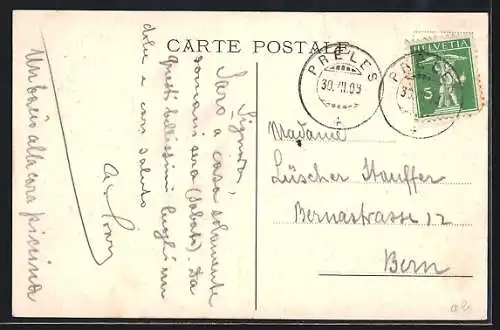 CARTE POSTALE
Signora,
Sarò a casa solamente
domani sera (Sabato). Da
questi bellissimi luoghi un
dolce e caro saluto
Un bacio alla cara piccina
PRÊLES
30.VII.09
HELVETIA
5
Madame
Lüscher Stauffer
Bernastrasse 12
Bern